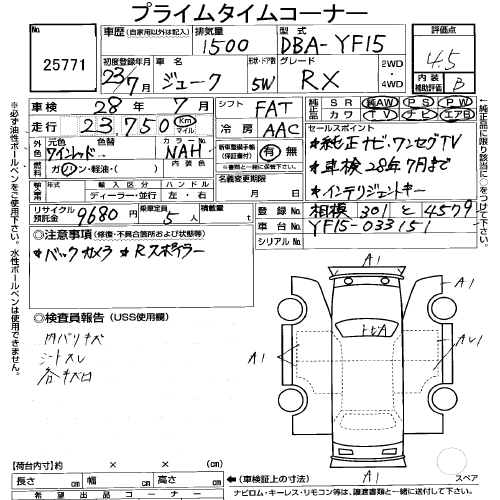 プライムタイムコーナー
出品No.
25771
車歴 (自家用以外は記入)
排気量
1500
型式
DBA-YF15
評価点
4.5
内装補助評価
B
初度登録年月
23年7月
車名
ジューク
形状・ドア数
5W
グレード
RX
2WD
4WD
車検 28年 7月
シフト FAT
純正品 SR 純AW PS PW
カワ TV ナビ エアB
走行 23,750 Km マイル
冷房 AAC
セールスポイント
★純正ナビ・ワンセグTV
★車検28年7月まで
★インテリジェントキー
外色 元色 ワインレッド 色替
カラーNo. NAH
内装色
ガソリン・軽油・( )
新車整備手帳(保証書付) 有 無
※書類と一緒に保管して下さい。
名義変更期限
月 日
輸入車 年式 輸入区分 ハンドル
ディーラー・並行 左・右
リサイクル預託金 9680円
乗車定員 5人
積載量 t
登録No. 相模 301 と 4579
車台No. YF15-033151
シリアルNo.
◎注意事項 (修復・不具合箇所および状態等)
★バックカメラ ★Rスポイラー
◎検査員報告 (USS使用欄)
内バリキズ
シートスレ
各キズ凹
A1
A1
A1
A1
トビA
【荷台内寸】 × × (cm)
長さ cm 幅 cm 高さ cm
(車検証上の寸法)
スペア
希望出品コーナー
ナビロム・キーレス・リモコン等は、譲渡書類と一緒に送付して下さい。
※必ず油性ボールペンをご使用下さい。水性ボールペンは使用できません。